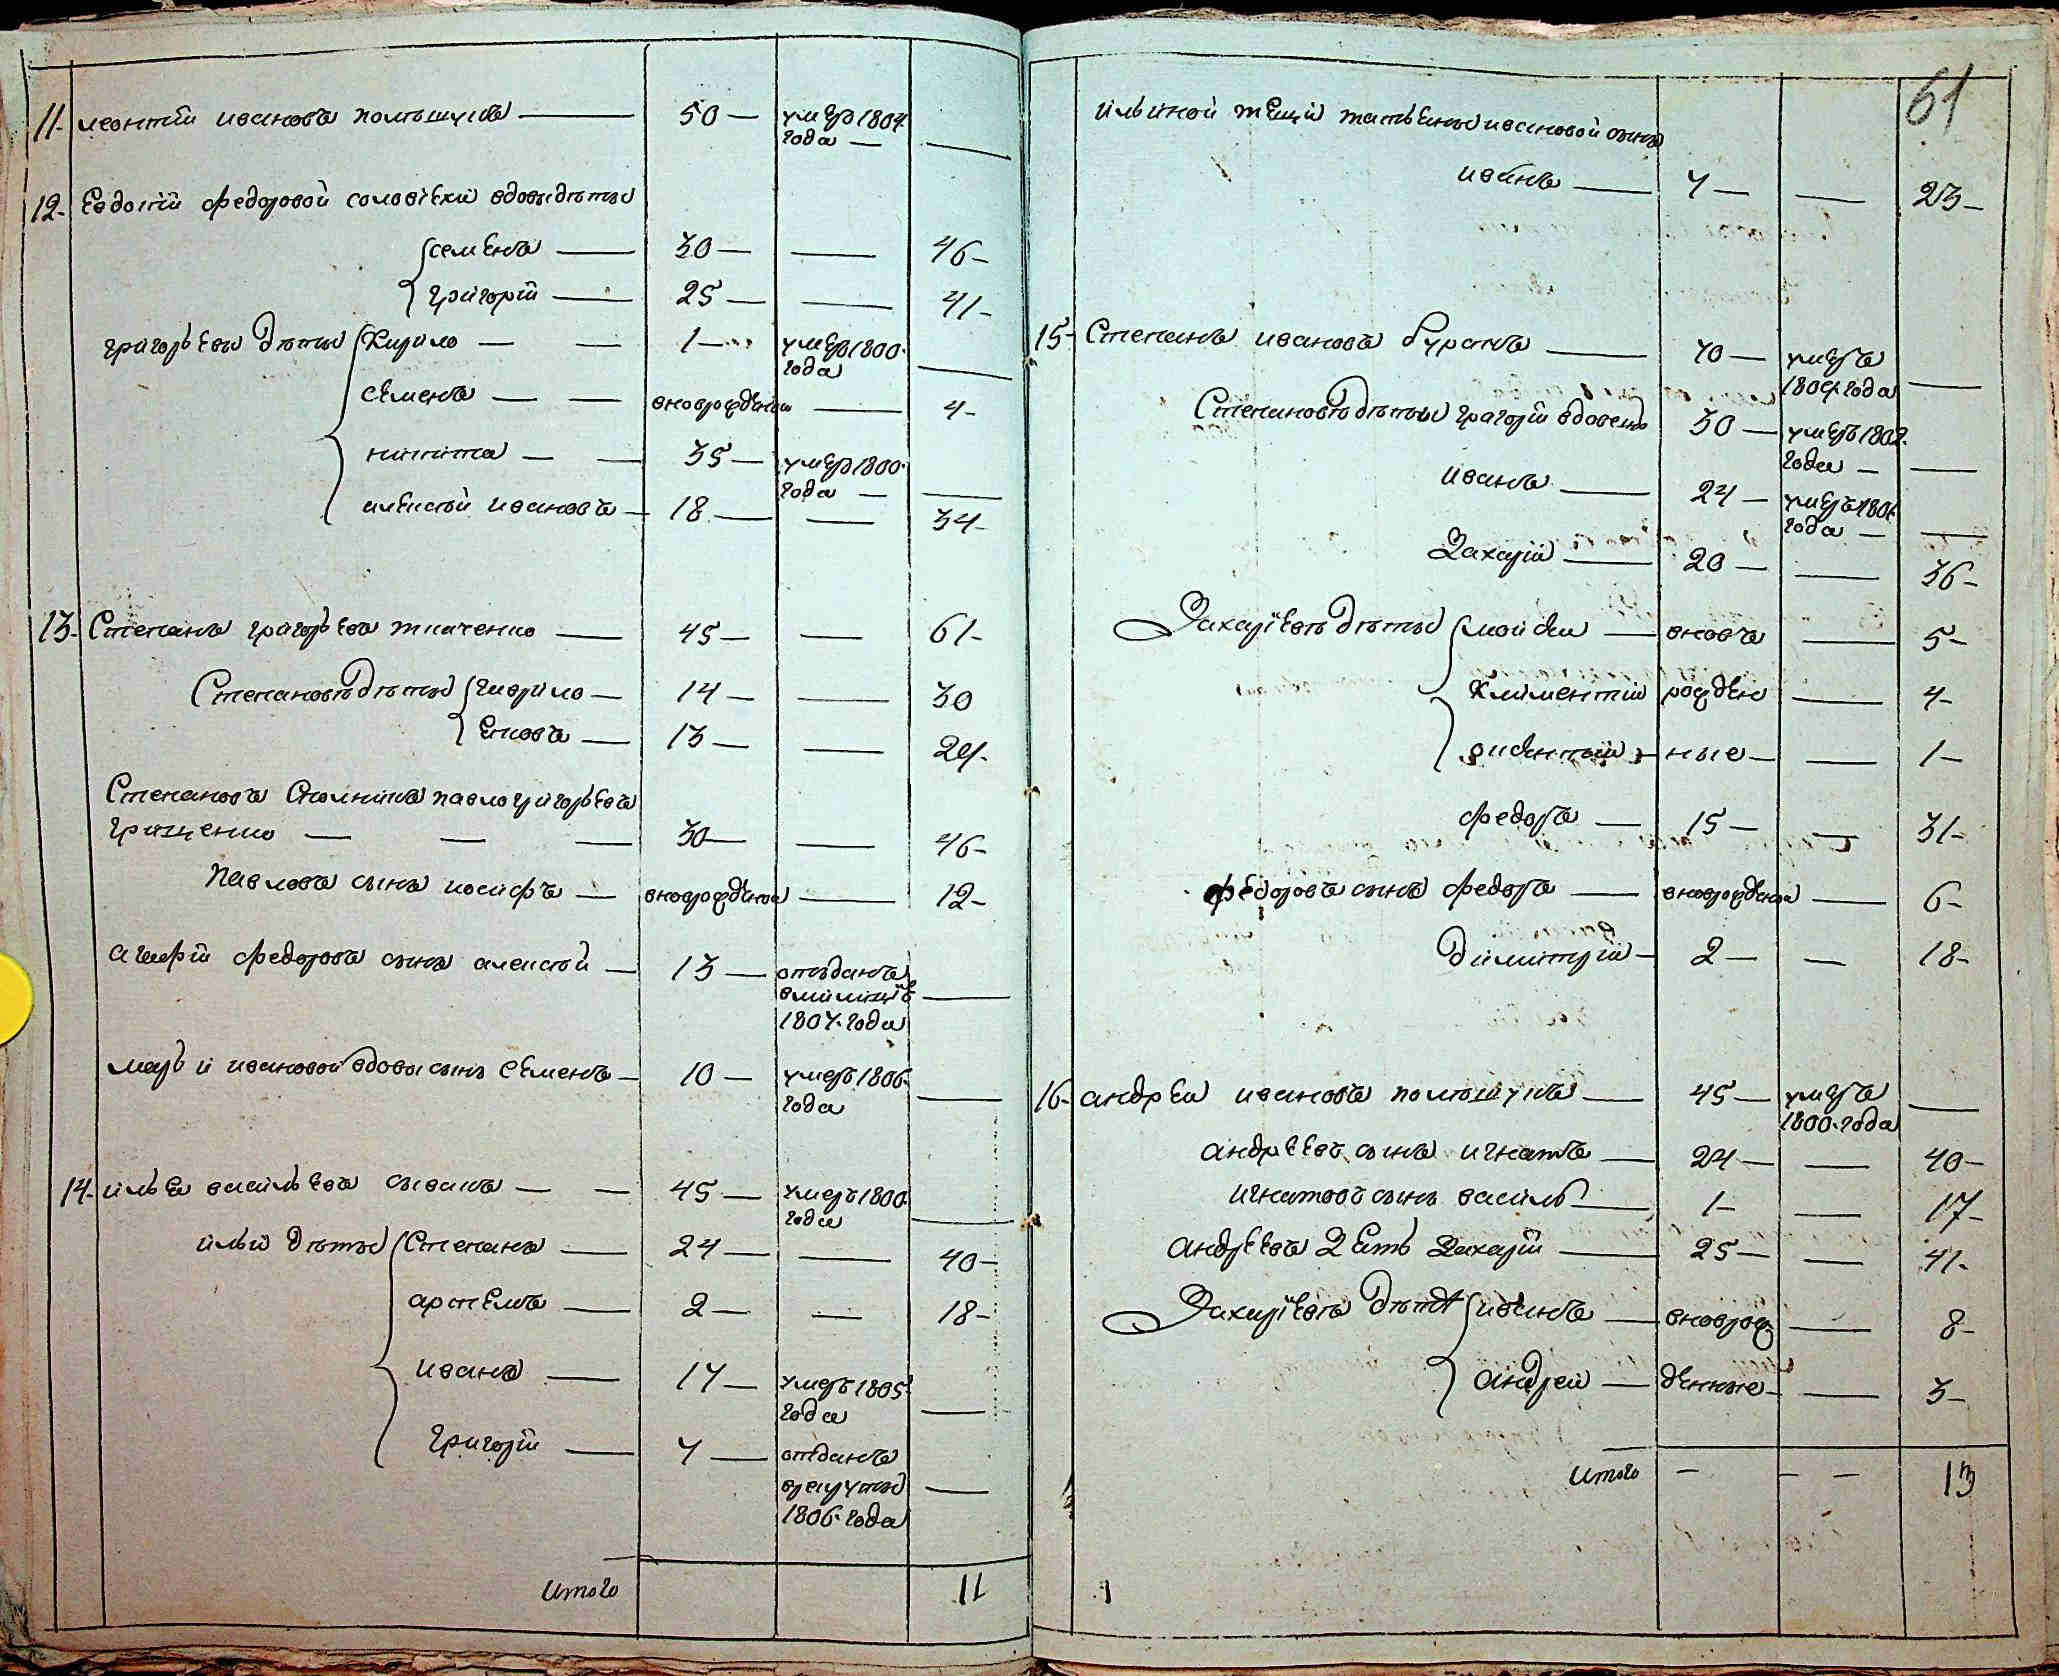 11. леонтій ивановъ полтышукъ — 50 — умеръ 1804.
года —
12. Евдокіи Федоровой соловьіхи вдовы дѣты
семенъ — 30 — — 46 —
григорій — 25 — — 41 —
григорьевы дѣты Кирило — — 1 — умеръ 1800.
года —
семенъ — — вноворожденой — 4 —
никита — — 35 — умеръ 1800.
года — —
алексѣй ивановъ — 18 — — 34 —
13. Степанъ григорьевъ ткаченко — 45 — — 61 —
Степановы дѣты гаврило — 14 — — 30
Яковъ — 13 — — 29 —
Степановъ павло григорьевъ
грищенко — — — 30 — — 46 —
Павловъ сынъ иосифъ — вноворожденой — 12 —
федоровъ сынъ алексѣй — 13 — отъданъ
вмилицію —
1807. года
марьи ивановой вдовы сынъ Семенъ — 10 — умеръ 1806.
года —
14. илья васильевъ — — 45 — умеръ 1800.
года —
ильи дѣты Степанъ — 24 — — 40 —
артемъ — 2 — — 18 —
иванъ — 17 — умеръ 1805.
года —
григорій — 7 — отданъ
врекруты —
1806. года
итого 11
61
ильиной тещи татьяны ивановой сынъ
иванъ — 7 — — 23 —
15. Степанъ ивановъ буракъ — 70 — умеръ
1804. года —
Степановы дѣты григорій вдовецъ 30 — умеръ 1802.
года — —
иванъ — 24 — умеръ 1801.
года — —
Захарій — 20 — — 36 —
Захаріевы дѣты мойсей — вновъ — 5 —
Климентій рожден — 4 —
— ные — — 1 —
федоръ — 15 — — 31 —
федоровъ сынъ федоръ — вноворожденой — 6 —
димитрій — 2 — — 18 —
16. андрей ивановъ полтышукъ — 45 — умеръ
1800. года —
андреевъ сынъ игнатъ — 24 — — 40 —
игнатовъ сынъ василь — 1 — — 17 —
андреевъ зять Захарій — 25 — — 41 —
Захаріевы дѣти иванъ — вноврож — 8 —
андрей — денные — — 3 —
итого — — — 13